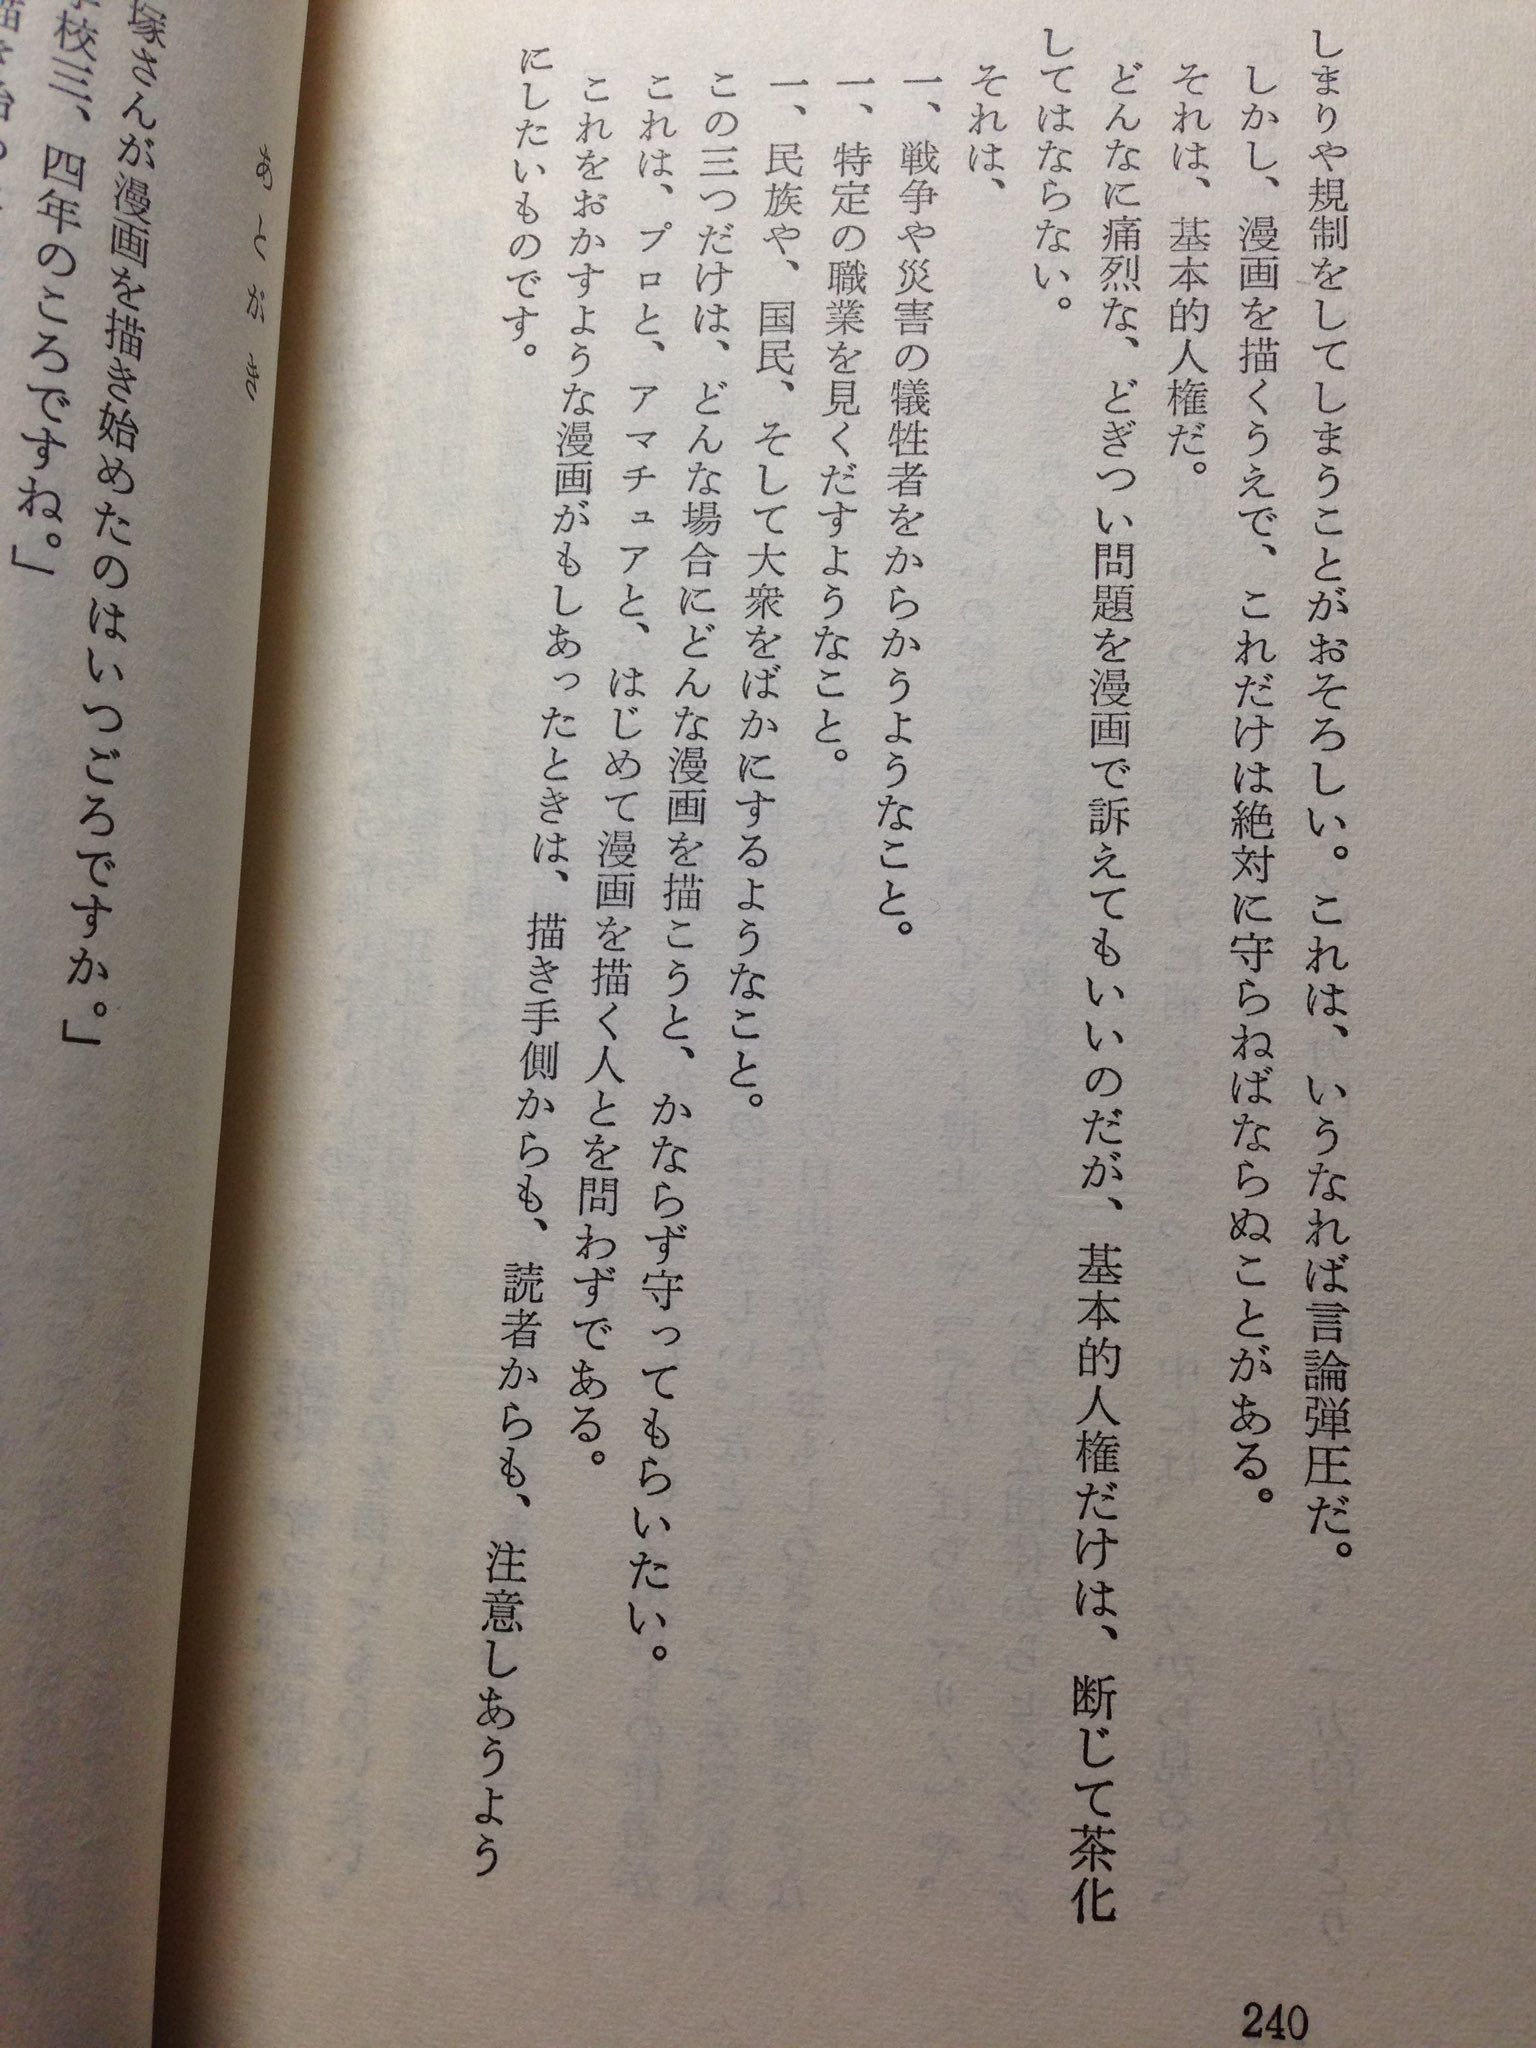 しまりや規制をしてしまうことがおそろしい。これは、いうなれば言論弾圧だ。
しかし、漫画を描くうえで、これだけは絶対に守らねばならぬことがある。
それは、基本的人権だ。
どんなに痛烈な、どぎつい問題を漫画で訴えてもいいのだが、基本的人権だけは、断じて茶化
してはならない。
それは、
一、戦争や災害の犠牲者をからかうようなこと。
一、特定の職業を見くだすようなこと。
一、民族や、国民、そして大衆をばかにするようなこと。
この三つだけは、どんな場合にどんな漫画を描こうと、かならず守ってもらいたい。
これは、プロと、アマチュアと、はじめて漫画を描く人とを問わずである。
これをおかすような漫画がもしあったときは、描き手側からも、読者からも、注意しあうよう
にしたいものです。
240
あとがき
塚さんが漫画を描き始めたのはいつごろですか。」
校三、四年のころですね。」